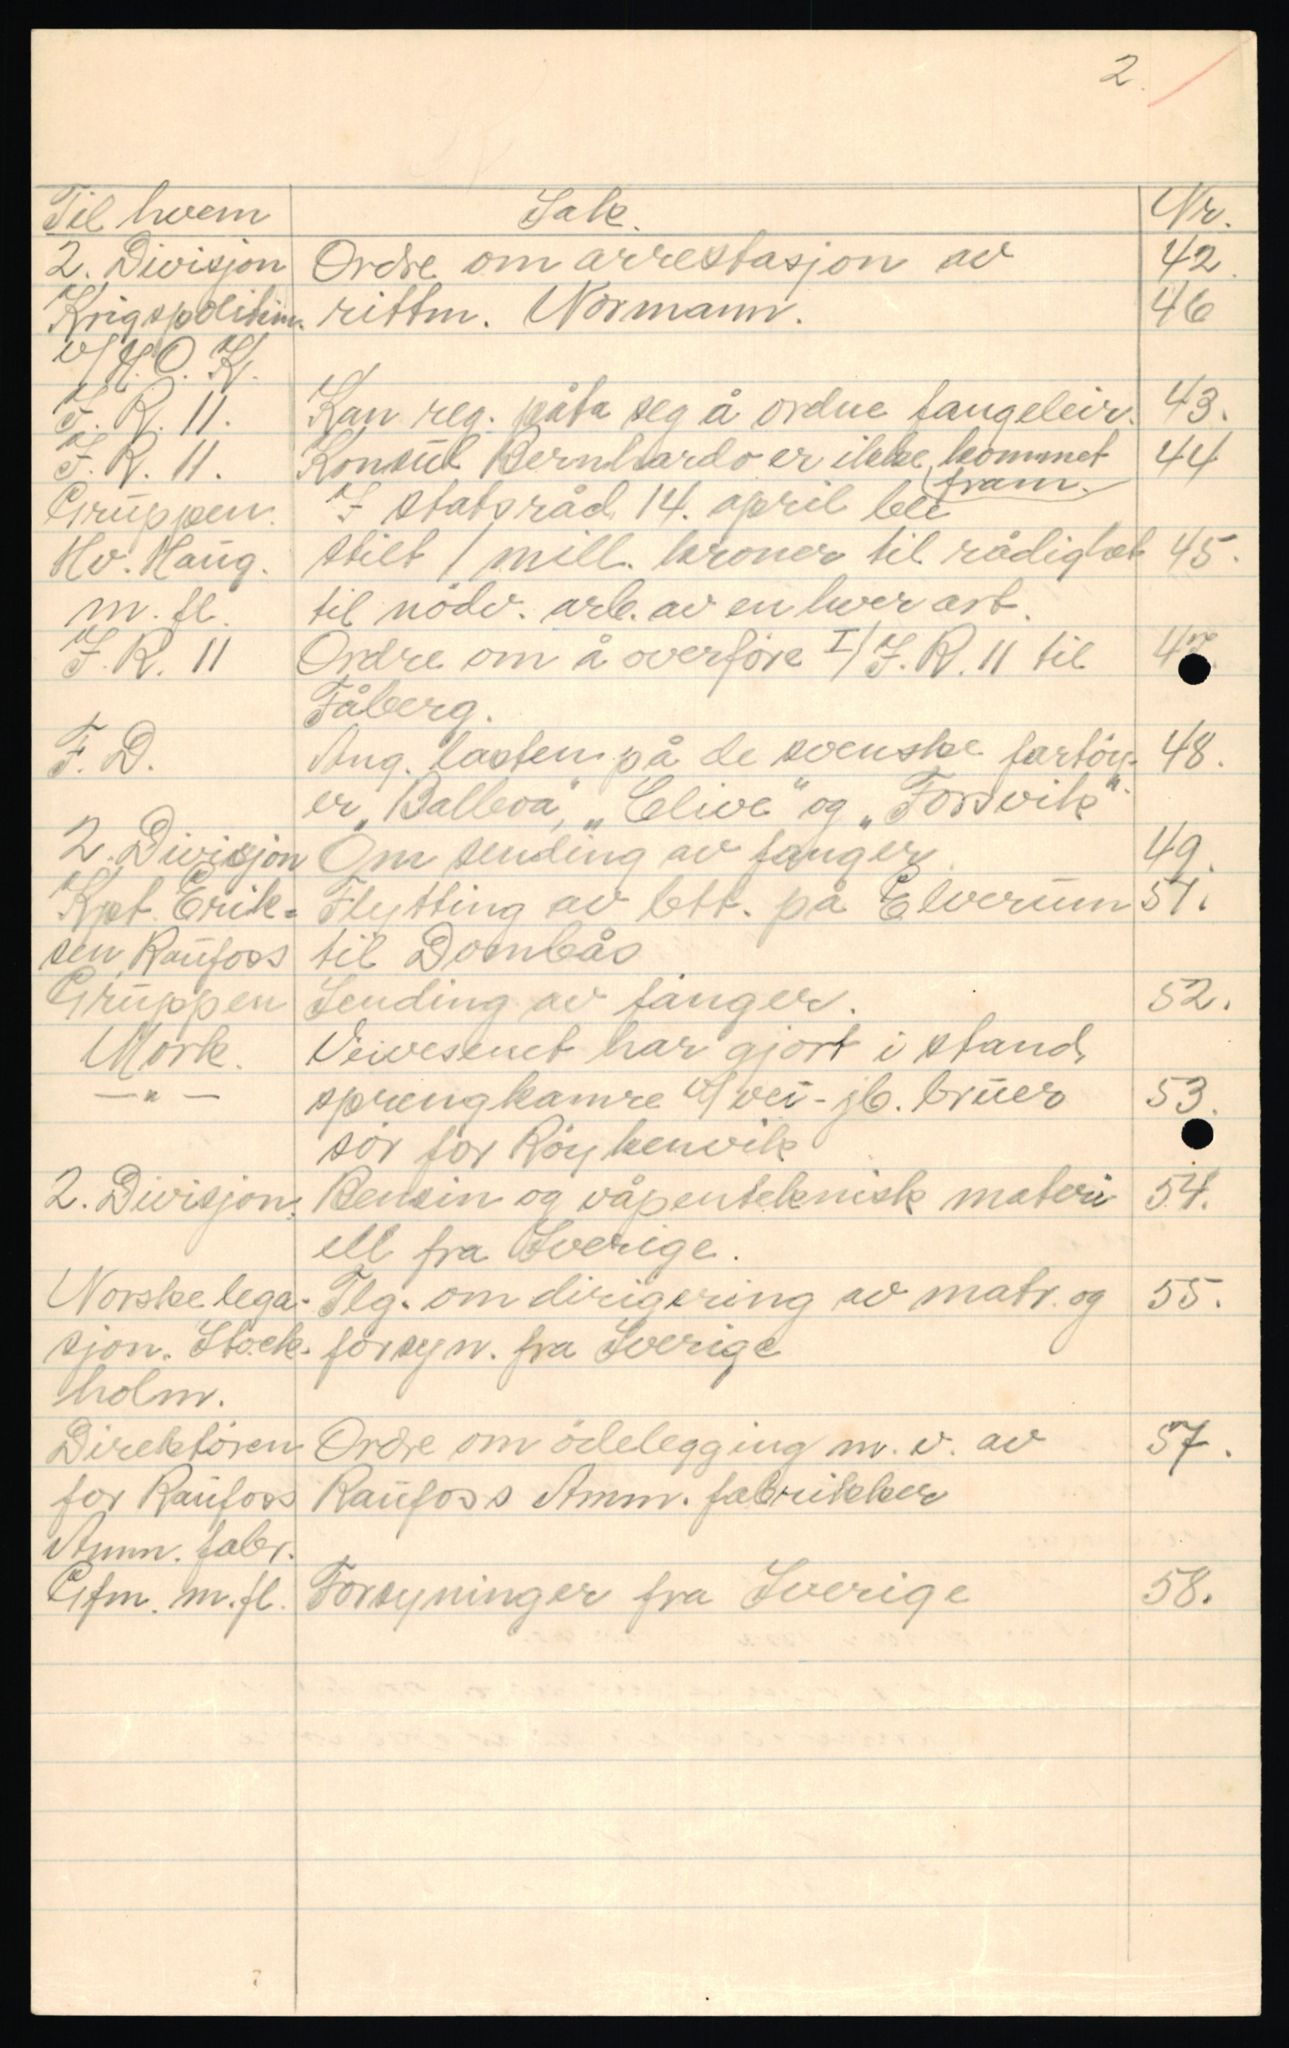 2.
Til hvem Sak. Nr.
2. Divisjon Ordre om arrestasjon av 42.
Krigspolitim. rittm. Normann. 46
v/ H.O.K.
I.R. 11. Kan reg. påta seg å ordne fangeleir. 43.
I.R. 11. Konsul Bernhardo er ikke kommet 44
fram.
Gruppen I statsråd 14. april ble
Hv. Haug. stilt 1 mill. kroner til rådighet 45.
m. fl. til nödv. arb. av en hver art.
I.R. 11 Ordre om å overføre I/I.R. 11 til 47.
Fåberg.
F.D. Ang. lasten på de svenske fartöy- 48.
er „Balboa", „Clive" og „Forsvik".
2. Divisjon Om sending av fanger 49.
Kpt. Erik- Flytting av btt. på Elverum 51.
sen Raufoss til Dombås
Gruppen Sending av fanger. 52.
Mork. Veivesenet har gjort i stand
—"— sprengkamre v/ vei- jb. bruer 53.
sör for Röykenvik
2. Divisjon. Bensin og våpenteknisk materi 54.
ell fra Sverige.
Norske lega- Tlg. om dirigering av matr. og 55.
sjon. Stock- forsyn. fra Sverige
holm.
Direktören Ordre om ödelegging m.v. av 57.
for Raufoss Raufoss Amm. fabrikker
Amm. fabr.
Gfm. m.fl. Forsyninger fra Sverige 58.